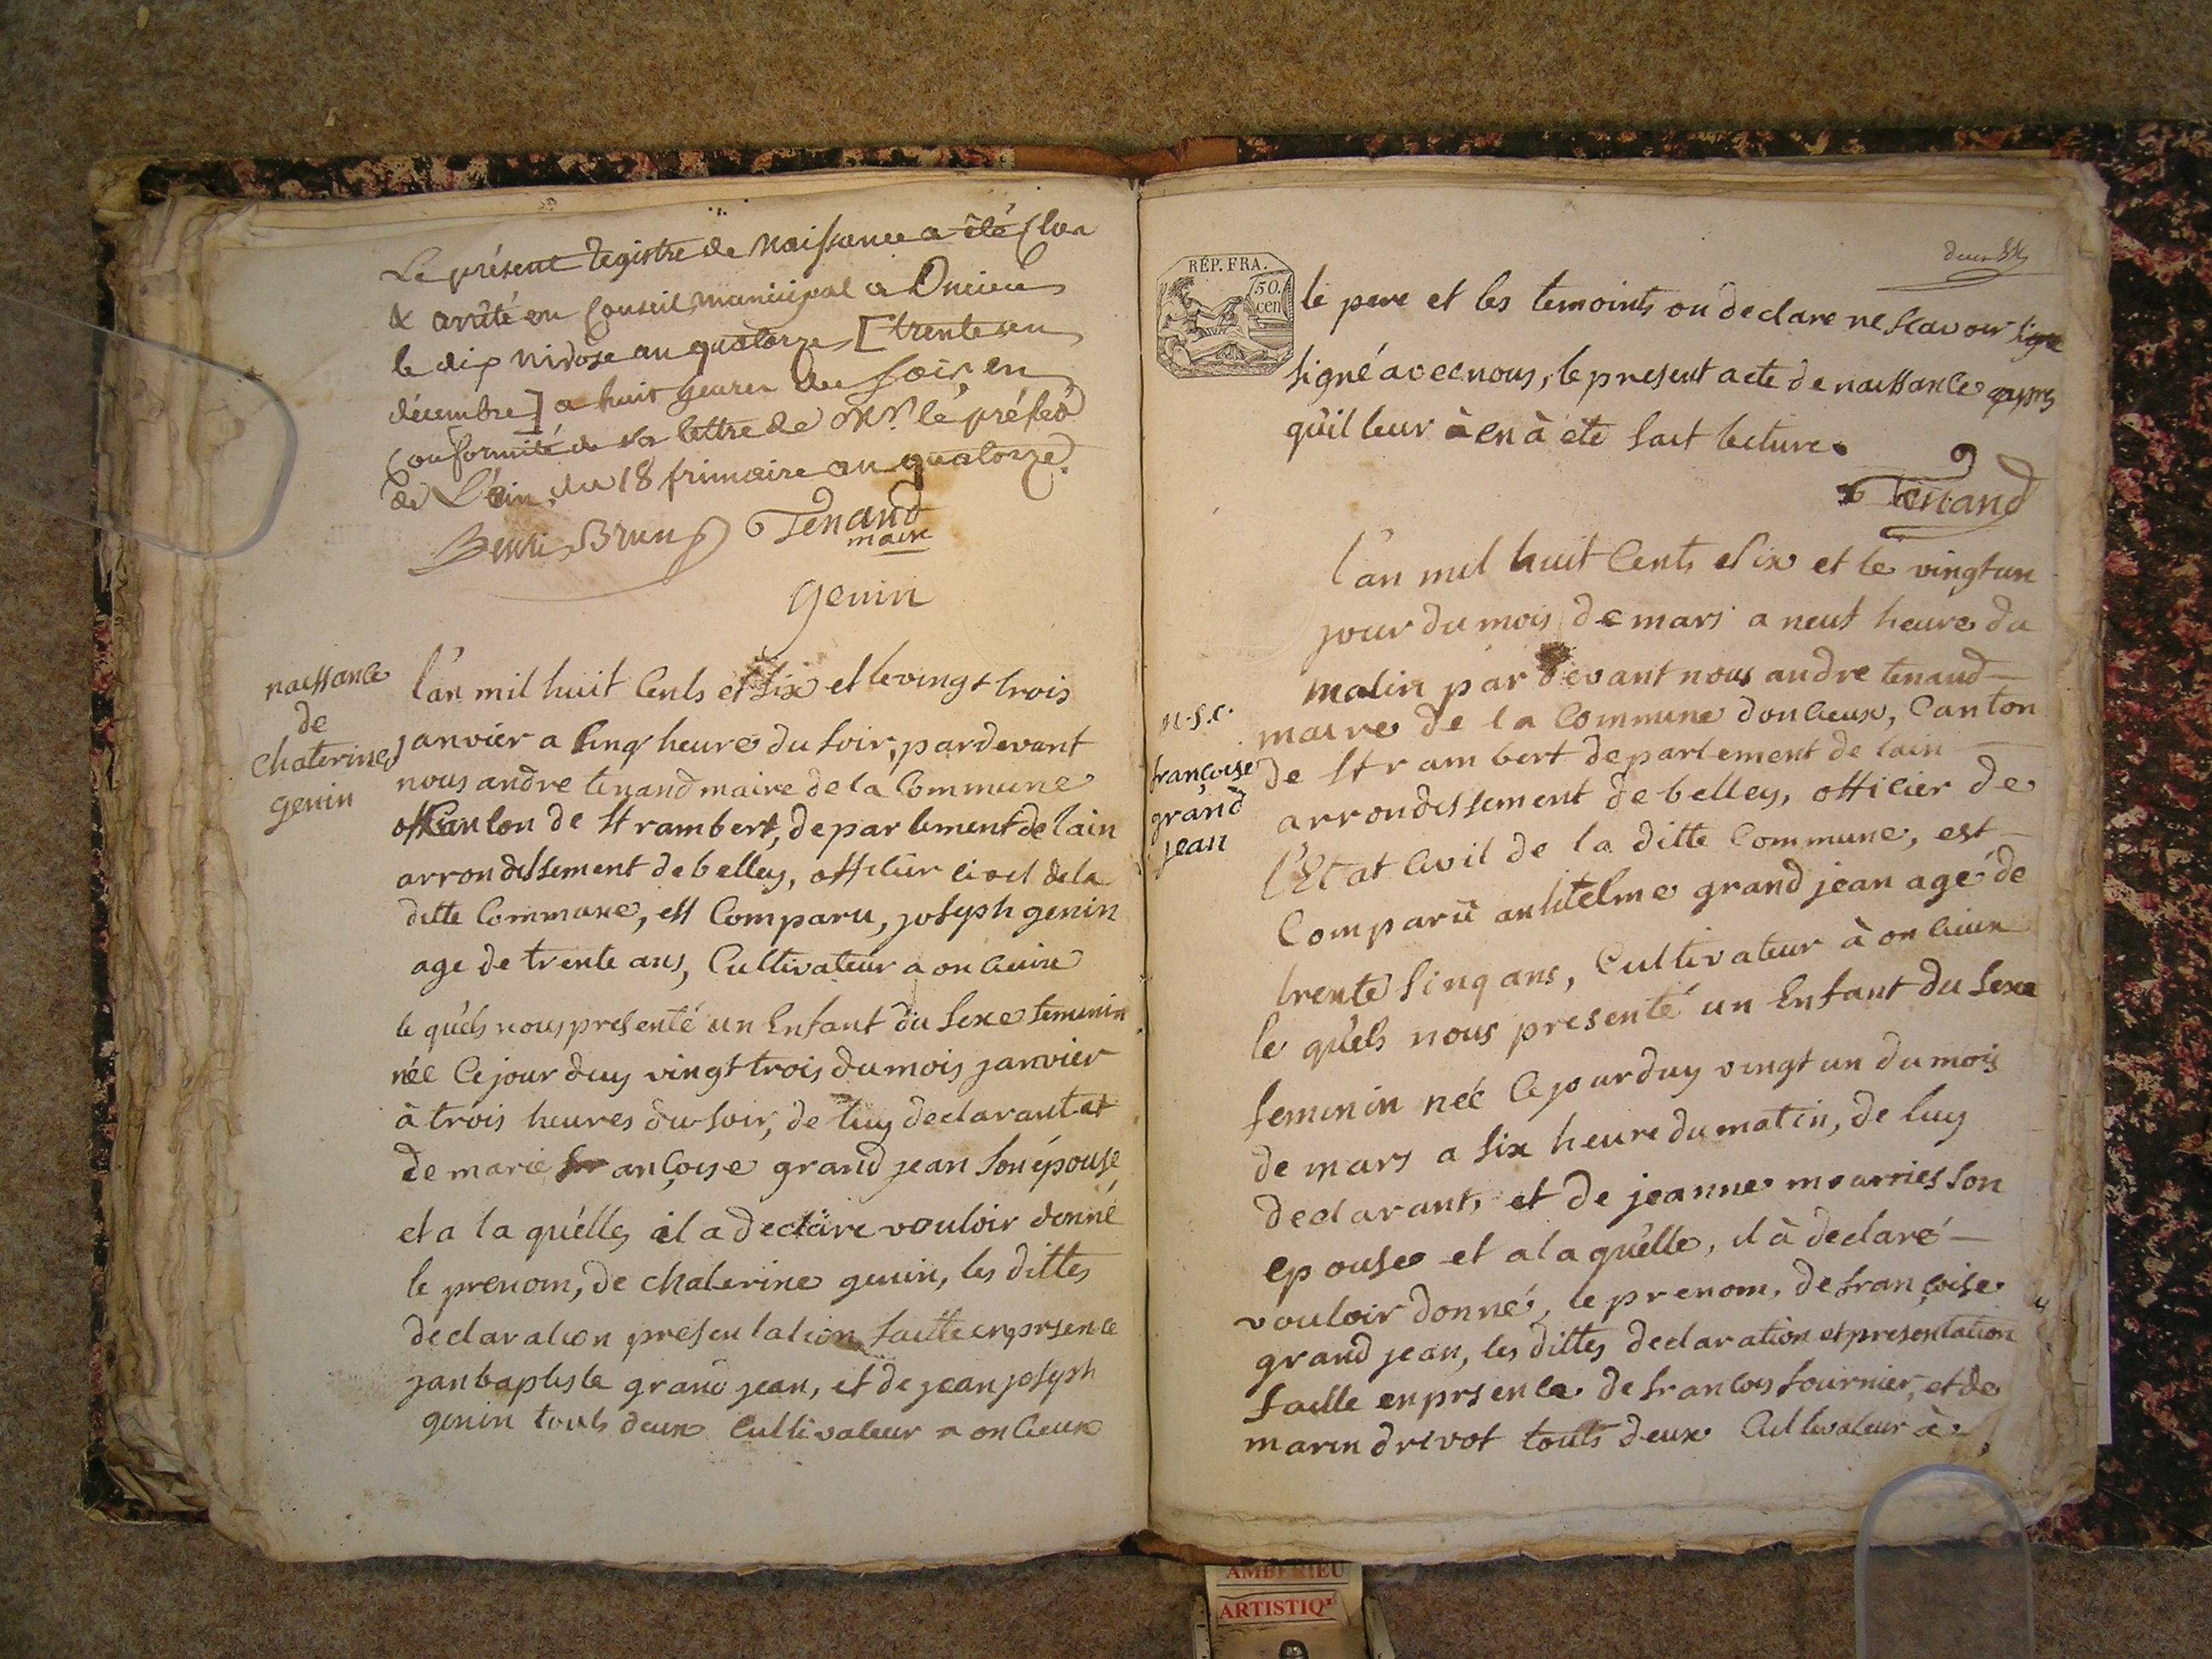 Le présent Registre de Naissance a été Clos
& arrêté en Conseil municipal a Oncieu
le dix nivose an quatorze [trente un
décembre] a huit heures du soir, en
Conformité de la lettre de Mr. le préfet
de L'ain, du 18 frimaire an quatorze.
Brun Tenand
maire
Genin
naissance
de
Chaterine
genin
l'an mil huit Cents et six et le vingt trois
janvier a sinq heure du soir, pardevant
nous andre tenand maire de la Commune
Canton de St rambert, departement de lain
arrondissement de belley, officier civil de la
ditte Commune, est Comparu, joseph genin
age de trente ans, Cultivateur a oncieux
le quels nous presenté un Enfant du sexe feminin
née Cejourduy vingt trois du mois janvier
à trois heures du soir, de luy declarant et
de marie françoise grand jean son épouse
et a la quelle, il a declare vouloir donné
le prenom, de chaterine genin, les dittes
declaration presentation faitte en prsence
jan baptiste grand jean, et de jean joseph
genin touts deux Cultivateur a oncieux
RÉP. FRA.
50.
cen
le pere et les temoints on declare ne scavoir signe
signé avec nous, le present acte de naissance apres
qu'il leur à en à éte fait lecture.
Tenand
l'an mil huit Cents et six et le vingt un
jour du mois de mars a neuf heure du
matin par devant nous andre tenand
maire de la Commune d'oncieux, Canton
de St rambert departement de lain
arrondissement de belley, officier de
l'Etat Civil de la ditte Commune, est
Comparû anthelme grand jean agé de
trente sinq ans, Cultivateur à oncieux
le quels nous presenté un Enfant du sexe
feminin neé Cejourduy vingt un du mois
de mars a six heure du matin, de luy
declarant, et de jeanne mourries son
epouse et a la quelle, il à declaré
vouloir donné, le prenom, de françoise
grand jean, les dittes declaration et presentation
faitte en prsence de francois fournier, et de
marin drivot touts deux Cultivateur à
n.s.c.
françoise
grand
jean
AMBERIEU
ARTISTIQ